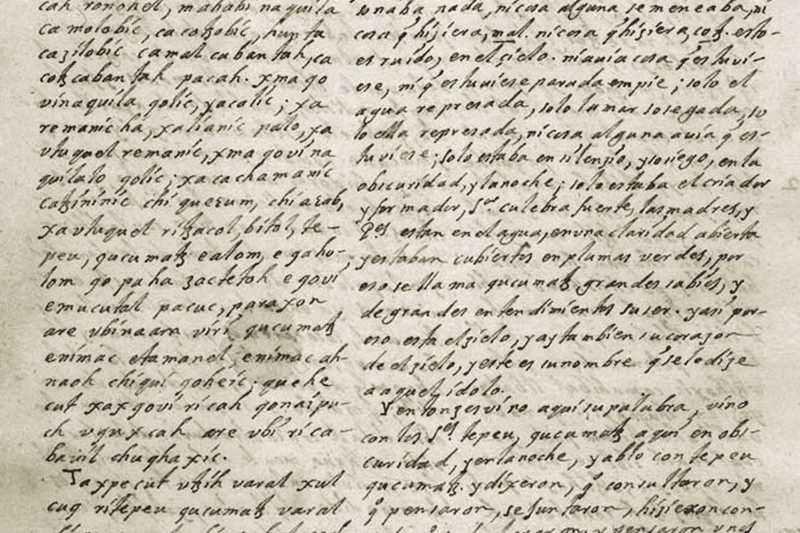 cah xonohel, mahabi naquila
ca molobic, ca cotzobic, hunta
cazilobic camal caban tah, ca
cotz caban tah pacah. xma go
vinaquila golic, yacolic; xa
remanic ha, xalianic palo, xa
vtuquel remanic, xma govi na
quilalo golic; xa cachamanic
catzininic chi quecum, chi acab,
xa vtuquel ri tzacol, bitol, te-
peu, qucumatz ealom, e gaho-
lom go pa ha zactetoh e govi,
emucutal pa cuc, paraxon
are vbinaam vi ri qucumatz
enimac etamanel, enimac ah-
naoh chiqui goheic; quehe
cut xax govi ri cah gonaipu-
ch vqux cah are vbi ri ca-
bavil chughaxic.
Taxpe cut vtzih varal xul
cuq ri tepeu qucumatz varal
sonaba nada, ni cosa alguna se meneaba, ni
cosa q hiziera, mal. ni cosa q hiziera, cotz. esto-
es ruido, en el çielo. ni avia cosa q estuvi-
ese, ni q estuviese parada em pie; solo el
agua represada, solo la mar sosegada, so
lo ella represada, ni cosa alguna avia q es-
tuviese; solo estaba en silenzio, y sosiego, en la
obscuridad, y la noche; solo estaba el criador
y formador, Sr. culebra fuerte, las madres, y
Ps. estan en el agua, en vna claridad abierta
y estaban cubiertos en plumas verdes, por
eso se llama qucumatz, grandes sabios, y
de grandes entendimientos su ser. y asi por-
eso esta el zielo, y ay tambien su corazor
de el zielo, y este es su nombre q se lo dize
a aquel ídolo.
Y entonzes vino aqui su palabra, vino
con los Sres. tepeu, qucumatz aqui en obs-
curidad, y en la noche, y ablo con tepeu
qucumatz. y dixeron, q consultaron, y
q pensaron, se juntaron, hizieron con-